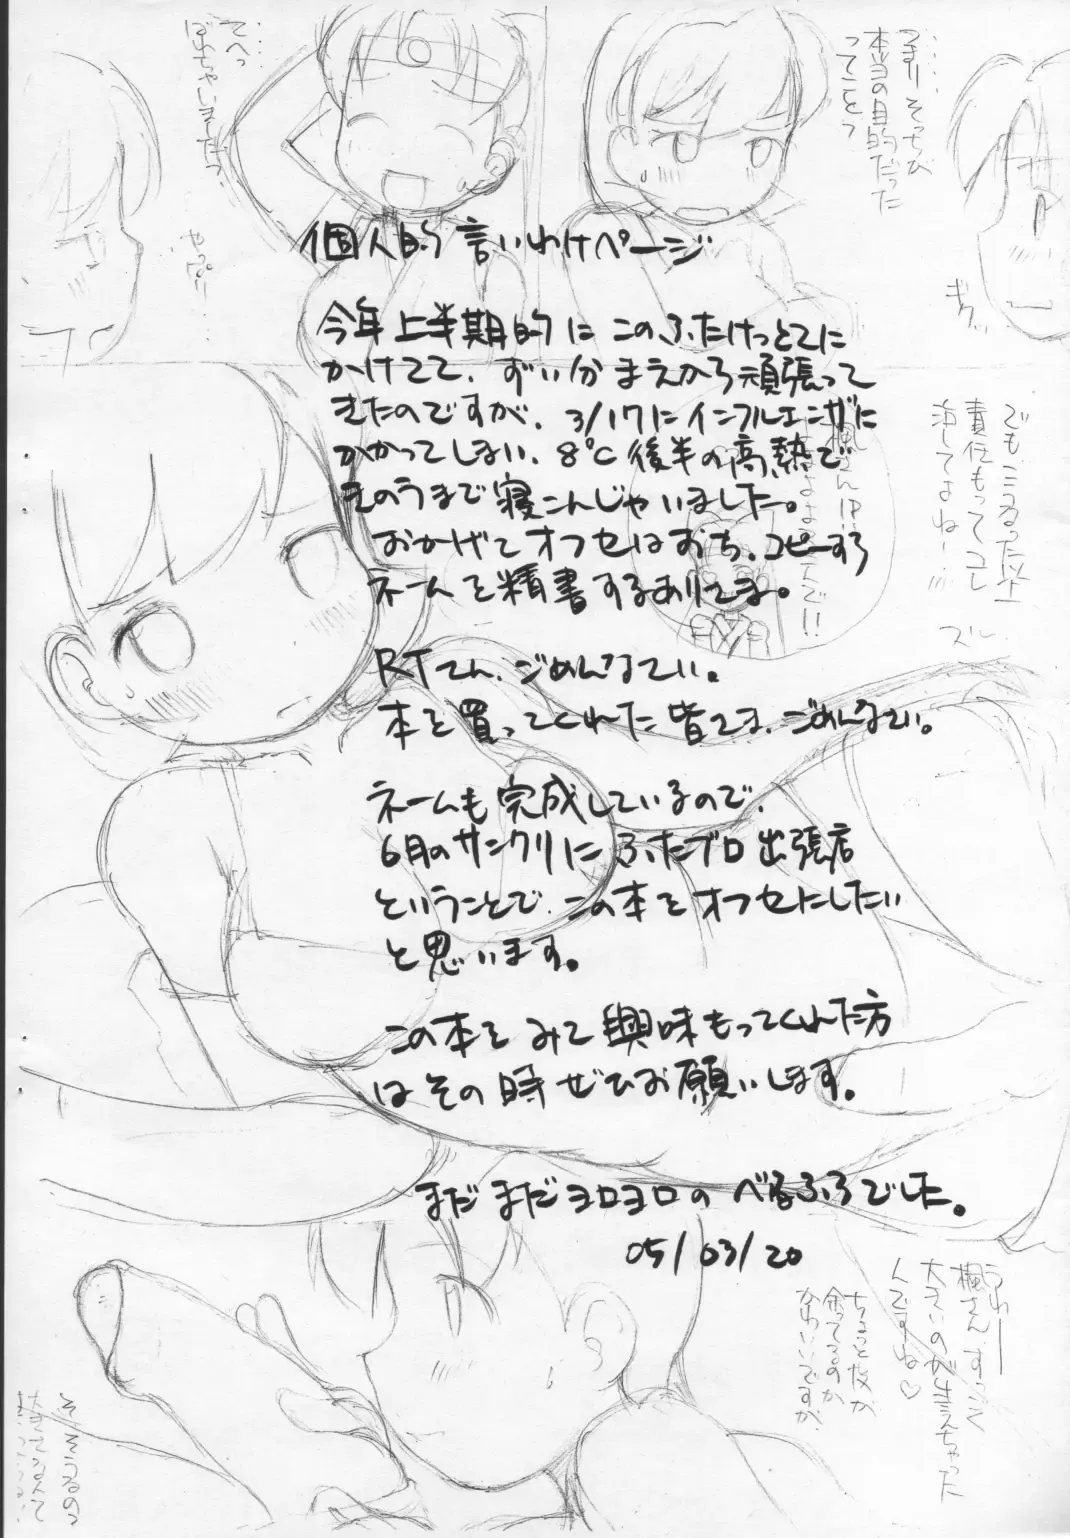 個人的言いわけページ
今年上半期的にこのふたけっとさに
かけてて、ずい分まえから頑張って
きたのですが、3/17にインフルエンザに
かかってしまい、8℃後半の高熱で
きのうまで寝こんじゃいました。
おかげでオフセはおち、コピーすら
ネームを精書するありさま。
RTさん、ごめんなさい。
本を買ってくれた皆さま、ごめんなさい。
ネームも完成しているので、
6月のサンクリにふたプロ出張店
ということで、この本をオフセにしたい
と思います。
この本をみて興味もってくれた方
はその時ぜひお願いします。
まだまだヨロヨロのべるふろでした。
05/03/20
つまりそっちが
本当の目的だった
ってことっ
てへっ
ばれちゃいましたっ
やっぱー……
ギクッ
でも、こうなった以上
責任もってコレ
ズル…
うわー
楓さん、すっごく
大きいのが生えちゃった
んですね♡
ちょっと皮が
余ってるのが
かわいいですが